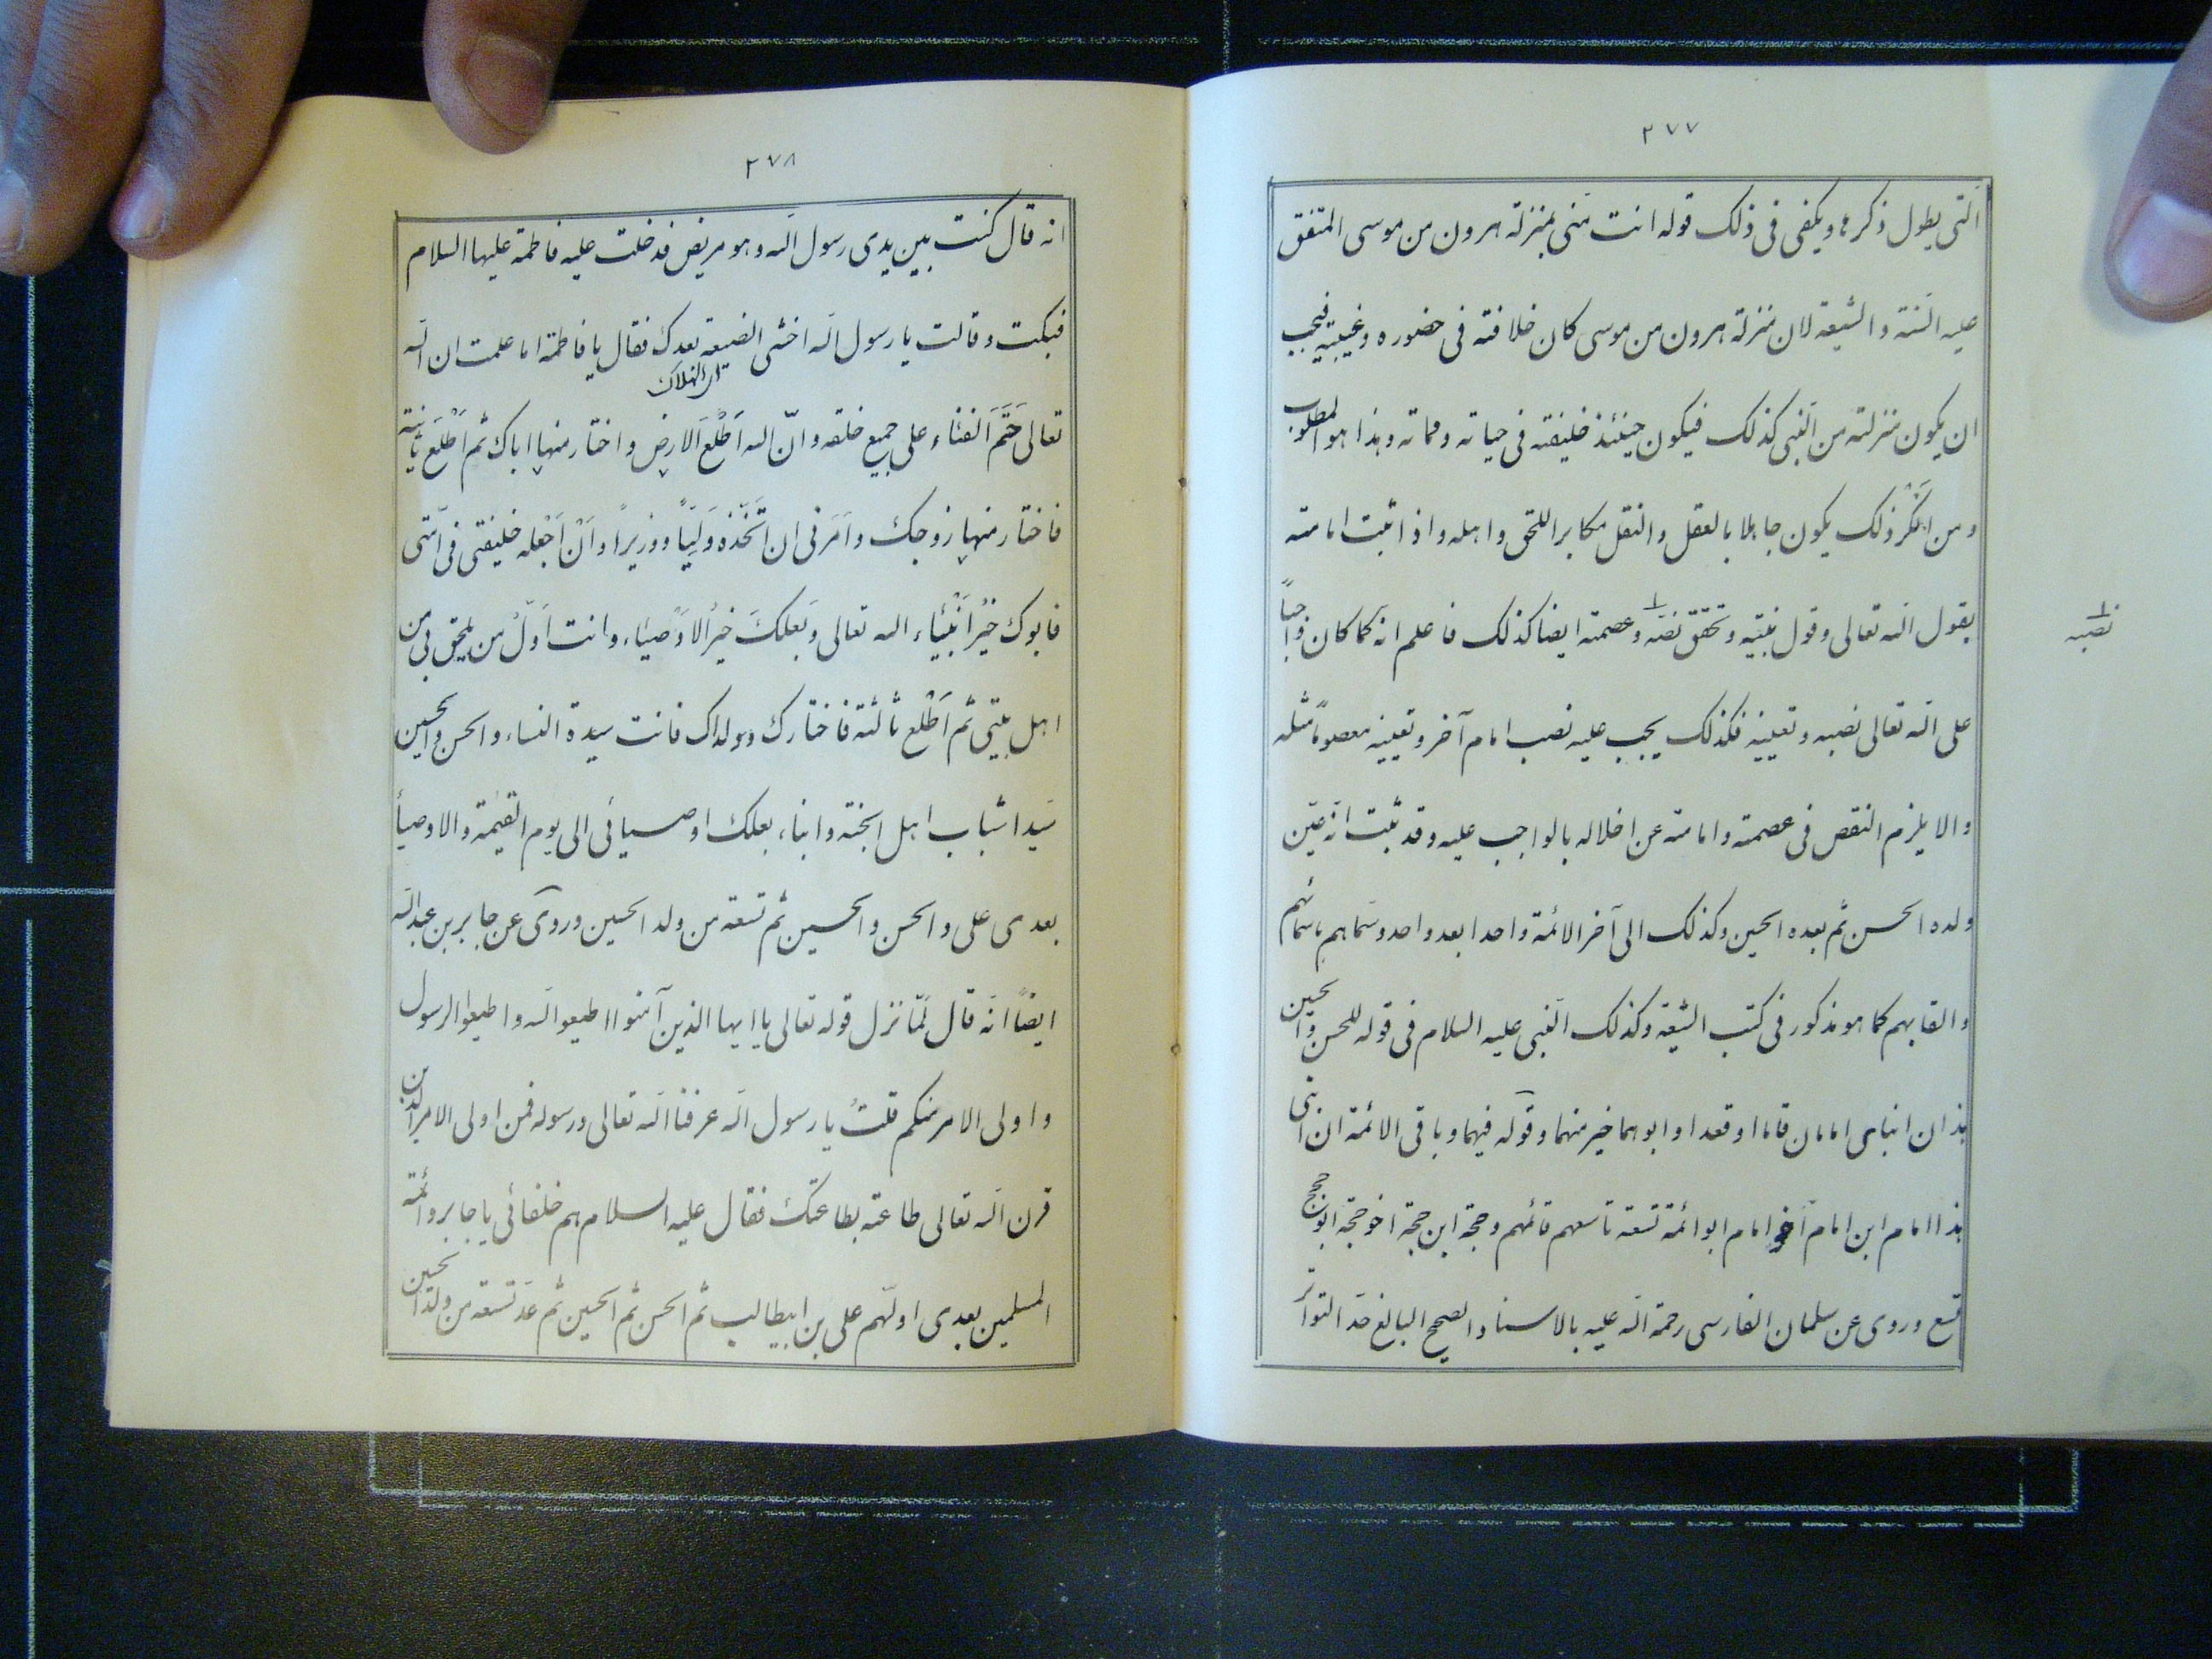 ٢٧٧
الّتی یطول ذکرها ویکفی فی ذلک قوله انت منّی بمنزلة هرون من موسی المتفق
علیه السّنة والشیعة لان منزلة هرون من موسی کان خلافته فی حضوره وغیبته فیجب
ان یکون منزلته من النّبی کذلک فیکون حینئذ خلیفته فی حیاته ومماته وهذا هو المطلوب
ومن انْکَر ذلک یکون جاهلا بالعقل والنقل مکابرا للحق واهله واذا ثبت امامته
بقول الله تعالی وقول نبیّه وتحقق نصّه وعصمته ایضا کذلک فاعلم انّه کما کان واجباً
نصبه
علی الله تعالی نصبه وتعیینه فکذلک یجب علیه نصب امام آخر وتعیینه معصوماً مثله
والا یلزم النقص فی عصمته وامامته عن اخلاله بالواجب علیه وقد ثبت انّه عیّن
ولده الحسن ثم بعده الحسین وکذلک الی آخر الائمة واحدا بعد واحد وسمّاهم باسمائهم
والقابهم کما هو مذکور فی کتب الشیعة وکذلک النّبی علیه السلام فی قوله للحسن والحسین
هذان ابنای امامان قاما او قعدا وابوهما خیر منهما وقوله فیهما وباقی الائمة ان ابنی
هذا امام ابن امام اخو امام ابو ائمة تسعة تاسعهم قائمهم وحجة ابن حجة اخو حجة ابو حجج
تسع وروی عن سلمان الفارسی رحمة الله علیه بالاسناد الصحیح البالغ حدّ التواتر
٢٧٨
انه قال کنت بین یدی رسول الله وهو مریض فدخلت علیه فاطمة علیها السلام
فبکت وقالت یا رسول الله اخشی الضیعة بعدک فقال یا فاطمة اما علمت ان الله
ای الهلاک
تعالی حَتَمَ الفناء علی جمیع خلقه وانّ الله اطّلَعَ الارض واختار منها اباک ثم اطّلَعَ ثانیة
فاختار منها زوجک وامَرَنی ان اتّخِذه ولیّاً ووزیراً وانْ اجْعله خلیفتی فی امّتی
فابوک خیْرُ انْبیاء الله تعالی وبَعلکَ خیرُ الاوْصیاء وانت اوّلُ من یلحق بی من
اهل بیتی ثم اطّلع ثالثة فاختارک وولداک فانت سیدة النساء والحسن والحسین
سَیّدا شباب اهل الجنة وابناء بعلک اوصیائی الی یوم القیمة والاوصیأ
بعدی علی والحسن والحسین ثم تسعة من ولد الحسین وروی عن جابر بن عبدالله
ایضاً انّه قال لمّا نزل قوله تعالی یا ایها الذین آمنوا اطیعوا الله واطیعوا الرسول
واولی الامر منکم قلتُ یا رسول الله عرفنا الله تعالی ورسوله فمن اولی الامر الذین
قرن الله تعالی طاعته بطاعتک فقال علیه السلام هم خلفائی یا جابر وائمة
المسلمین بعدی اولهم علی بن ابیطالب ثم الحسن ثم الحسین ثم عدّ تسعة من ولد الحسین